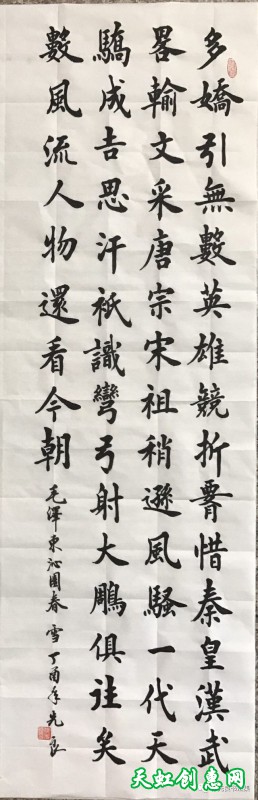 多嬌引無數英雄競折𦝫惜秦皇漢武
畧輸文采唐宗宋祖稍遜風騷一代天
驕成吉思汗衹識彎弓射大鵰俱往矣
數風流人物還看今朝
毛澤東沁園春 雪 丁酉年先良
天虹创惠网